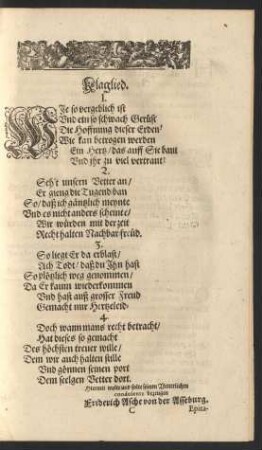 Klaglied.
1.
Wie so vergeblich ist
Vnd ein so schwach Gerüst
Die Hoffnung dieser Erden/
Wie kan betrogen werden
Ein Hertz/ das auff Sie baut
Vnd ihr zu viel vertraut!
2.
Seh't unsern Vetter an/
Er gieng die Tugend ban
So/ daß ich gäntzlich meynte
Vnd es nicht anders scheinte/
Wir würden mit der zeit
Recht halten Nachbar freüd.
3.
So liegt Er da erblast/
Ach Todt/ daß du Ihn hast
So plötzlich weg genommen/
Da Er kaum wiederkommen
Vnd hast auß grosser Freud
Gemacht nur Hertzeleid.
4.
Doch wann mans recht betracht/
Hat dieses so gemacht
Des höchsten treuer wille/
Dem wir auch halten stille
Vnd gönnen seinen port
Dem seelgen Vetter dort.
Hiermit wolte und solte seinem Vetterlichen
bezeugen
Friderich Asche von der Asseburg.
C Epita-